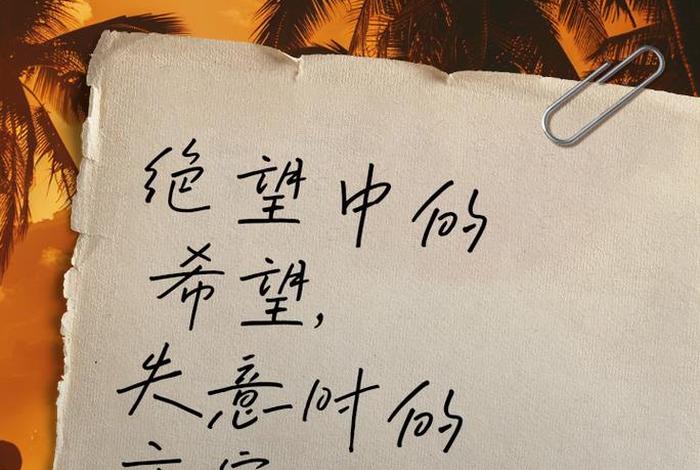 绝望中的
希望,
失意时的